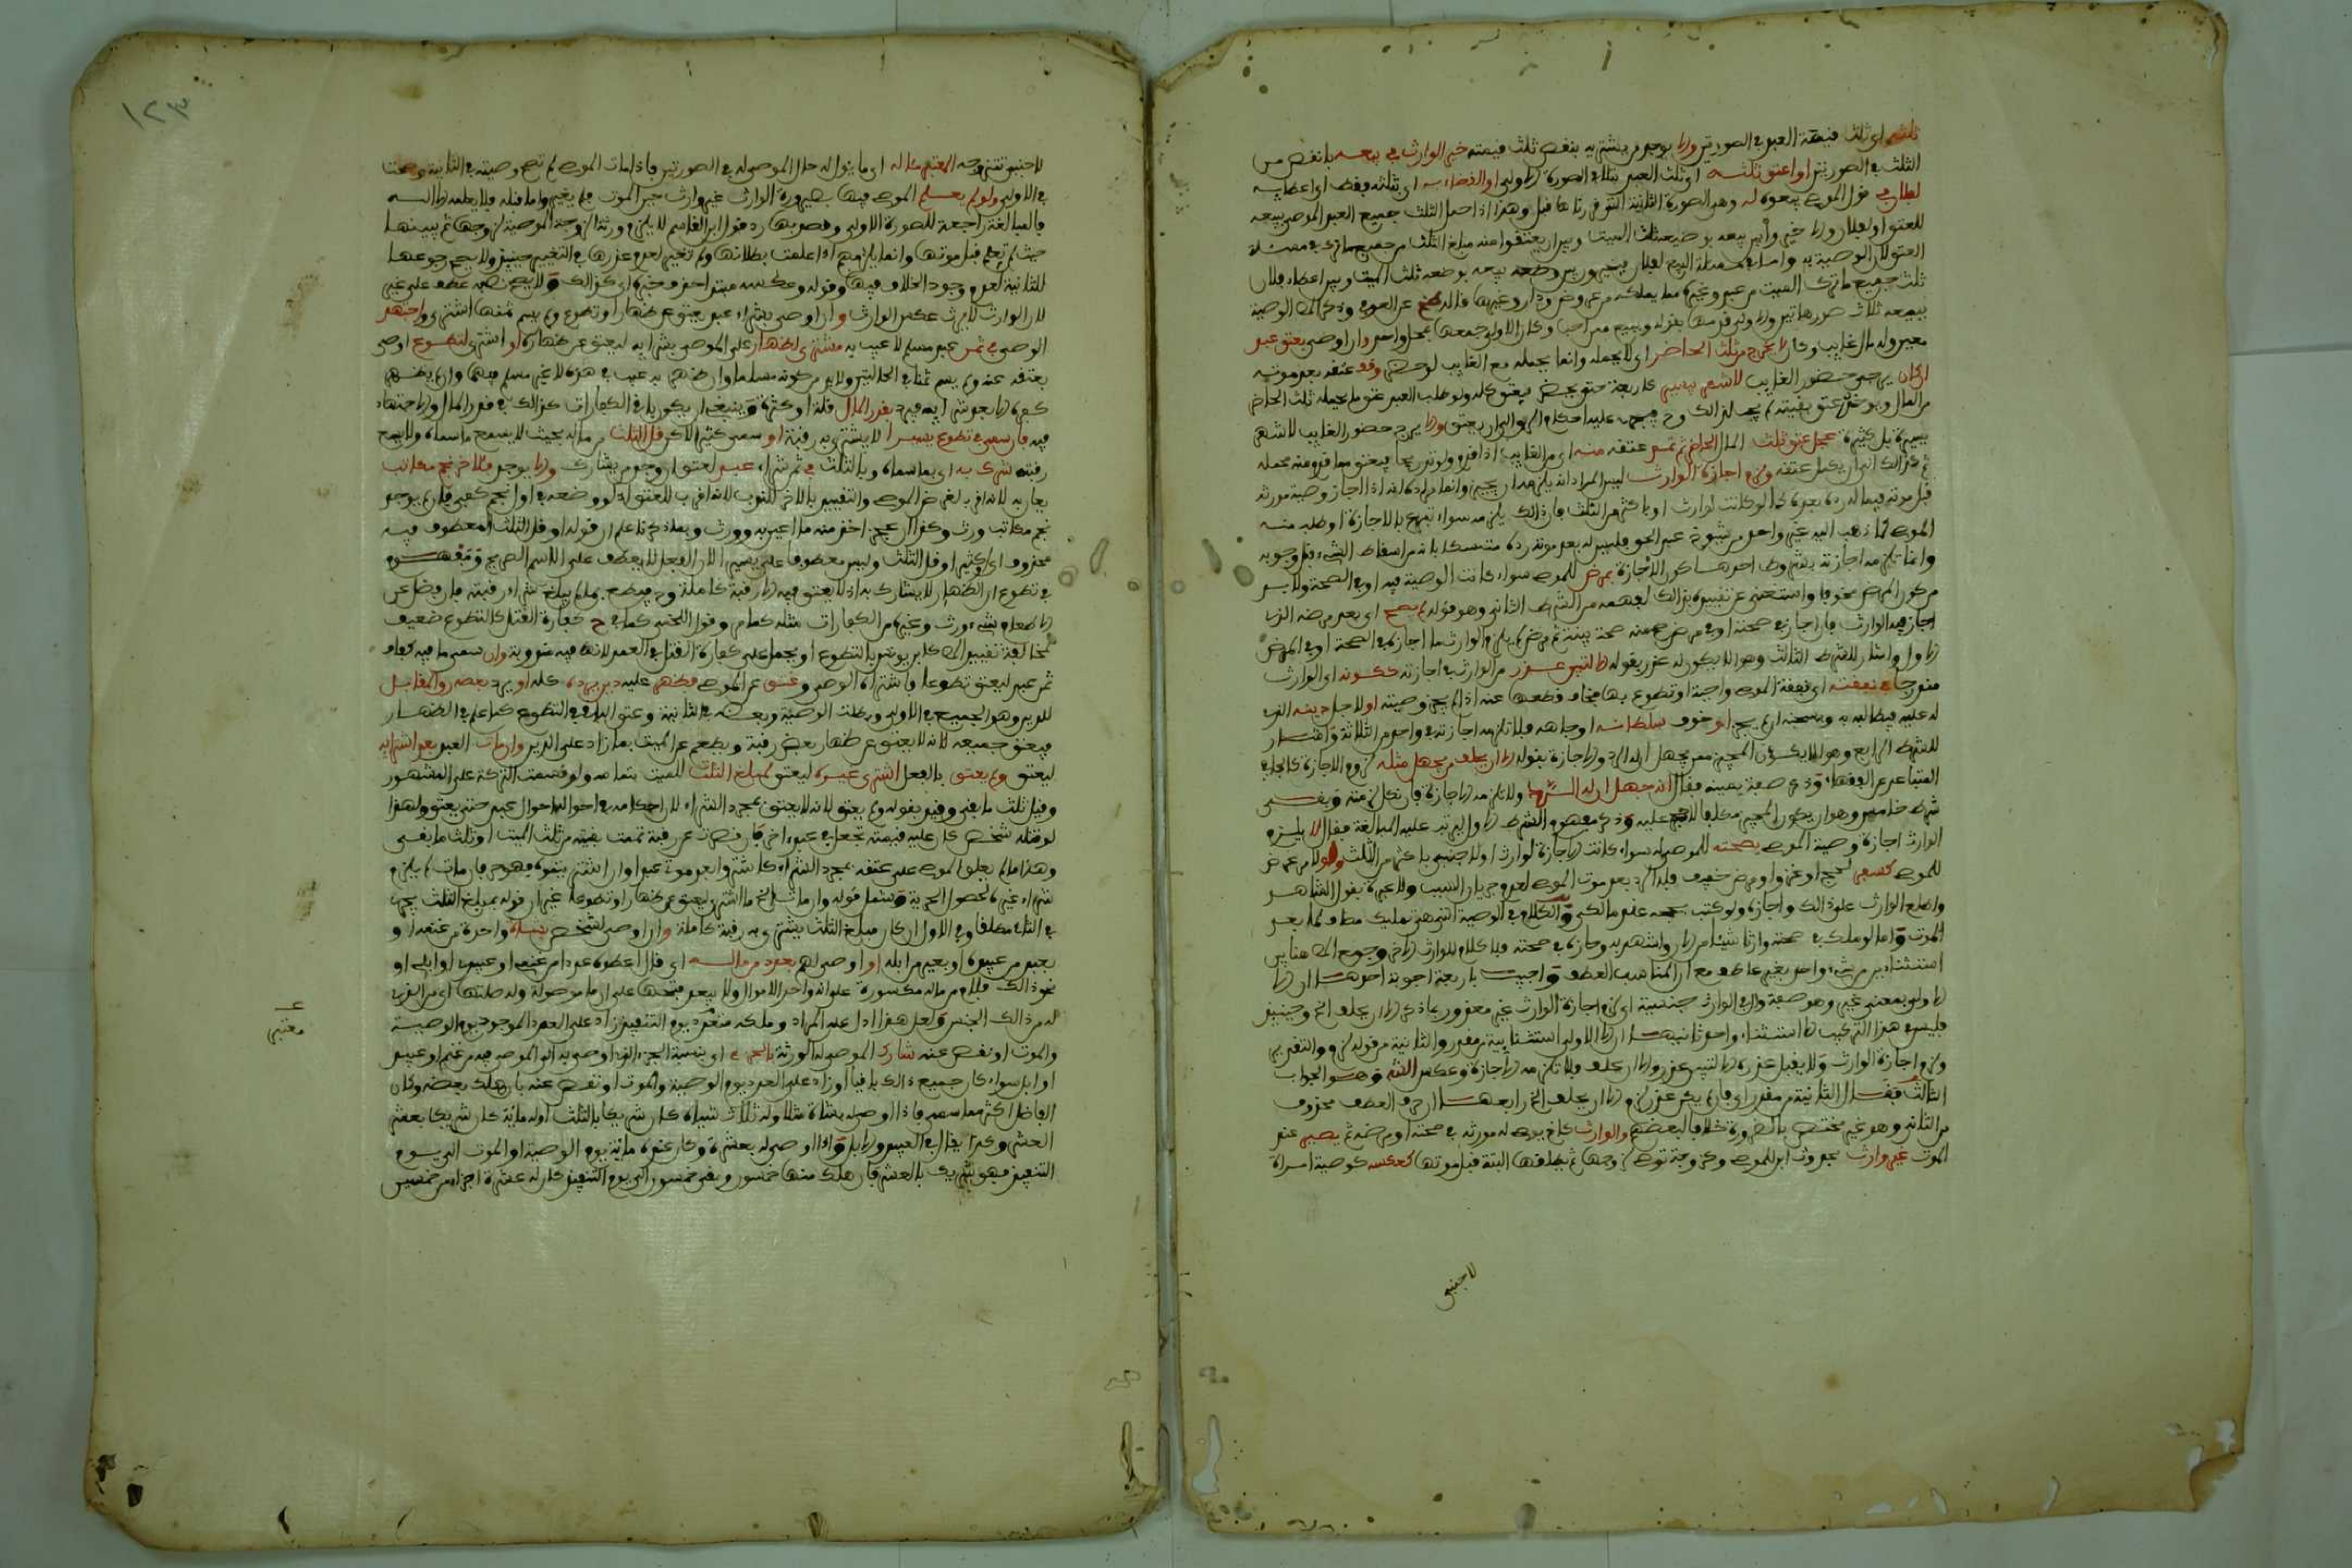 ثلثه اي ثلث قيمة العبد في الصورتين والا يوجد من يشتريه بنقص ثلث قيمته خير الوارث في بيعه بانقص من
الثلث في الصورتين او اعتق ثلثه اي ثلث العبد بتلا في الصورة الاولى او القضاء به اي بثلثه فقط اي اعطايه
لفلان في قول الموصي بيعوه له وهي الصورة الثانية التي قررنا بها قبل وهذا اذا حمل الثلث جميع العبد الموصى ببيعه
للعتق او لفلان والا خير الوارث بين بيعه بوضيعة ثلث الميت وبين ان يعتقوا منه مبلغ الثلث من جميع ما ترك في مسئلة
العتق لان الوصية به واما في مسئلة البيع لفلان فيخيرون بين بيعه بوضعه ثلث الميت وبين اعطاء فلان
ثلث جميع ما ترك الميت من عبد وغيره مما يملكه من عروض ودار وغيرها قاله عن العوفي وذكر الوصية
ببيعه ثلاث صور هاتين والاولى قدمها بقوله وبيع ممن احب وكان الاولى جمعها بمحل واحد وان اوصى بعتق عبد
معين وله مال غايب وكان لا يخرج من ثلث الحاضر اي لا يحمله وانما يحمله مع الغايب لو حضر وقف عتقه بعد موته
ان كان يرجى حضور الغايب لاشهر يسيرة كاربعة حتى يحضر فيعتق كله ولو طلب العبد عتق ما يحمله ثلث الحاضر
من المال ويوخر عتق بقيته لم يجب لذلك وح فيجرى عليه احكام الرق الى ان يعتق والا يرج حضور الغايب لاشهر
يسيرة بل كثيرة عجل عتق ثلث المال الحاضر ثم تمم عتقه منه اي من الغايب اذا قدم ولو تدريجا فيعتق مما قدم منه محمله
ثم كذلك الى ان يكمل عتقه ولزم اجازة الوارث ليس المراد انه يلزمه ان يجيز وانما مراده انه اذا اجاز وصية مورثه
قبل موته فيما له رده بعده كما لو كانت لوارث او باكثر من الثلث فان ذلك يلزمه سواء تبرع بالاجازة او طلبه منه
الموصي كما ذهب اليه غير واحد من شيوخ عبد الحق فليس له بعد موته رده متمسكا بانه من اسقاط الشيء قبل وجوبه
وانما تلزمه اجازته بشروط احدها كون الاجازة بمرض للموصي سواء كانت الوصية فيه او في الصحة ولا بد
من كون المرض مخوفا واستغنى عن تقييده بذلك لفهمه من الشرط الثاني وهو قوله لم يصح اي بعد مرضه الذي
اجاز فيه الوارث فان اجاز في صحته او في مرض صح منه صحة بينة ثم مرض لم يلزم الوارث ما اجازه في الصحة او في المرض
الاول واشار للشرط الثالث وهو الا يكون له عذر بقوله الا لتبين عذر من الوارث في اجازته ككونه اي الوارث
مندرجا في نفقته اي نفقة الموصي واجبة او تطوع بها فخاف قطعها عنه اذا لم يجز وصيته او لاجل دينه الذي
له عليه فيطالبه به ويسجنه ان لم يجز او خوف سلطانه او جاهه فلا تلزمه اجازته في واحد من الثلاثة واشار
للشرط الرابع وهو الا يكون المجيز ممن يجهل ان له الرد والاجازة بقوله الا ان يحلف من يجهل مثله لزوم الاجازة كالجافي
المتباعد عن الفقهاء وذكر صفة يمينه فقال انه جهل ان له الرد ولا تلزمه الاجازة فان نكل لزمته وبقي
شرط خامس وهو ان يكون المجيز مكلفا لا حجر عليه وذكر مفهوم الشرط الاول ليرتب عليه المبالغة فقال لا يلزم
الوارث اجازة وصية الموصي بصحته للموصى له سواء كانت الاجازة لوارث او لاجنبي باكثر من الثلث ولو لامر عرض
للموصي كسفر لحج او غزو او مرض خفيف فله الرد بعد موت الموصي لعدم جريان السبب ولا عبرة بقول الشاهد
واطلع الوارث على ذلك واجازه ولو كتب بخطه عند مالكي والكلام في الوصية التي هي تمليك مضاف لما بعد
الموت واما لو ملك في صحته وارثا شيئا من الان واشهد به وحازه في صحته فلا كلام للوارث الاخر وجمع المص هنا بين
استثنايين من شيء واحد بغير عاطف مع ان المناسب العطف واجيب باربعة اجوبة احدها ان الا
الاولى بمعنى غير وهو صفة وال في الوارث جنسية اي لزم اجازة الوارث غير معذور بما ذكر الا ان يحلف الخ وحينيذ
فليس في هذا التركيب الا استثناء واحد ثانيها ان الا الاولى استثنايية من مقدر والثانية من قوله لزم والتقدير
ولزم اجازة الوارث ولا يقبل عذره الا لتبين عذر والا ان يحلف فلا تلزمه الاجازة وعكس وهو الجواب
الثالث فقال الثانية من مقدر اي فان لم يكن عذر لزم الا ان يحلف الخ رابعها ان حرف العطف محذوف
من الثاني وهو غير مختص بالضرورة خلافا لبعضهم والوارث كاخ يوصى له مورثه في صحته او مرضه ثم يصير عند
الموت غير وارث بحدوث ابن للموصي وكزوجة توصي لزوجها ثم يطلقها البتة قبل موتها كعكسه كوصية امراة
لاجنبي
١٢٣
لاجنبي تتزوجه المعتبر مآله اي ما يؤول له حال الموصى له في الصورتين فاذا مات الموصي لم تصح وصيته في الثانية وصحت
في الاولى ولو لم يعلم الموصي فيها بصيرورة الوارث غير وارث حين الموت فلم يغيرها واما قبله فلا يعلمه الا الله
فالمبالغة راجعة للصورة الاولى وقصد بها رد قول ابن القاسم لا يلزم ورثة الزوجة الموصية لزوجها ثم يبينها
حيث لم تعلم قبل موتها وانما يلزمهم اذا علمت بطلاقها ولم تغير لعدم عذرها في التغيير حينيذ ولا يصح رجوعها
للثانية لعدم وجود الخلاف فيها وقوله وعكسه مبتدا حذف خبره اي كذلك ولا يصح نصبه عطف على غير
لان الوارث لا يرث عكس الوارث وان اوصى بشراء عبد يعتق عن ظهار او تطوع ولم يسم ثمنها اشترى واجتهد
الوصي في ثمن عبد مسلم لا عيب به مشترى لظهار على الموصي بشرايه ليعتق عن ظهاره او اشترى لتطوع اوصى
بعتقه عنه ولم يسم ثمنا في الحالتين ولا بد من كونه مسلما وان ظهر به عيب في هذه لا غير مسلم فيهما وان لم يظهر
كفره الا بعد شرايه فيرد بقدر المال قلة او كثرة وينبغي ان يكون باقي الكفارات كذلك في قدر المال والاجتهاد
فيه فان سمى في تطوع يسيرا لا يشترى به رقبة او سمى كثيرا لاكن قل الثلث من ماله بحيث لا يسع ما سماه ولا يبلغ
رقبة شرك به اي بما سماه وبالثلث في ثمن شراء عبد لعتق ان وجد من يشارك والا يوجد فآخر نجم مكاتب
يعان به لانه اقرب لغرض الموصي والتقييد بالاخر للندب لانه اقرب للعتق اذ لو وضعه في اول نجم كفى فان لم يوجد
نجم مكاتب ورث وكذا ان عجز اخذ منه ما اعين به وورث وبما ذكرنا علم ان قوله او قل الثلث المعطوف فيه
محذوف اي او كثيرا وقل الثلث وليس معطوفا على يسيرا لان الفعل لا يعطف على الاسم الصريح ومفهوم
في تطوع ان الظهار لا يشارك به اذ لا يعتق فيه الا رقبة كاملة وح فيطعم بما لم يبلغ شراء رقبة فان فضل عن
الاطعام شيء ورث وغيره من الكفارات مثله كما مر وقول اللخمي كما في ح كفارة القتل كالتطوع ضعيف
لمخالفة تقييد المص كابن يونس بالتطوع او يحمل على كفارة القتل في العمد لانها فيه مندوبة وان سمى ما فيه كفاف
ثمن عبد ليعتق تطوعا فاشتراه الوصي وعتق عن الموصي فظهر عليه دين يرده كله او يرد بعضه رد المقابل
للدين وهو الجميع في الاولى وبطلت الوصية وبعضه في الثانية وعتق الباقي في التطوع كما علم في الظهار
فيعتق جميعه لانه لا يعتق عن ظهار بعض رقبة ويطعم عن الميت بما زاد على الدين وان مات العبد بعد اشترايه
ليعتق ولم يعتق بالفعل اشترى غيره ليعتق لمبلغ الثلث للميت بتمامه ولو قسمت التركة على المشهور
وقيل ثلث ما بقي وقيد بقوله ولم يعتق لانه لا يعتق بمجرد الشراء لان احكامه في احواله احوال عبد حتى يعتق ولهذا
لو قتله شخص كان عليه قيمته تجعل في عبد اخر فان نقصت عن رقبة تممت بقيته من ثلث الميت او ثلث ما بقي
وهذا ما لم يعلق الموصي على عتقه بمجرد الشراء كاشتروا بعد موتي عبدا وان اشتريتموه فهو حر فان مات لم يلزم
شراء غيره لحصول الحرية وشمل قوله وان مات الخ ما اشترى ليعتق عن ظهار او تطوعا غير ان قوله بمبلغ الثلث يجرى
في الثاني مطلقا وفي الاول ان كان مبلغ الثلث يشترى به رقبة كاملة وان اوصى لشخص بشاة واحدة من غنمه او
بعبد من عبيده او بعير من ابله او اوصى لهم بعدد من ماله اي قال اعطوه عددا من غنمي او عبيدي او ابلي او
نحو ذلك فلام من ماله مكسورة على انه واحد الاموال ولا يبعد فتحها على ان ما موصولة وله صلتها اي من الذي
له من ذلك الجنس ولعل هذا ادل على المراد وملكه متعدد يوم التنفيذ زاد على العدد الموجود يوم الوصية
والموت او نقص عنه شارك الموصى له الورثة بالجزء اي بنسبة الجزء الذي اوصى به الى الموصى فيه من غنم او عبيد
او ابل سواء كان جميع ذلك باقيا او زاد على العدد يوم الوصية والموت او نقص عنه بان هلك بعضه وكان
الفاضل اكثر مما سمى فاذا اوصى له بشاة مثلا وله ثلاث شياه كان شريكا بالثلث او له ماية كان شريكا بعشر
العشر وكذا يقال في العبيد والابل واذا اوصى له بعشرة وكان غنمه ماية يوم الوصية او الموت الى يوم
التنفيذ فهو شريك بالعشر فان هلك منها خمسون وبقي خمسون الى يوم التنفيذ كان له عشرة اجزاء من خمسين